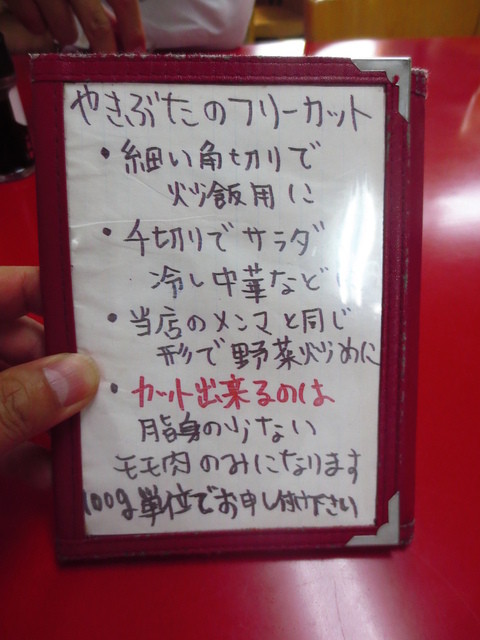 やきぶたのフリーカット
・細い角切りで
炒飯用に
・千切りでサラダ
冷し中華など
・当店のメンマと同じ
形で野菜炒めに
・カット出来るのは
脂身の少ない
モモ肉のみになります
100g単位でお申し付け下さい